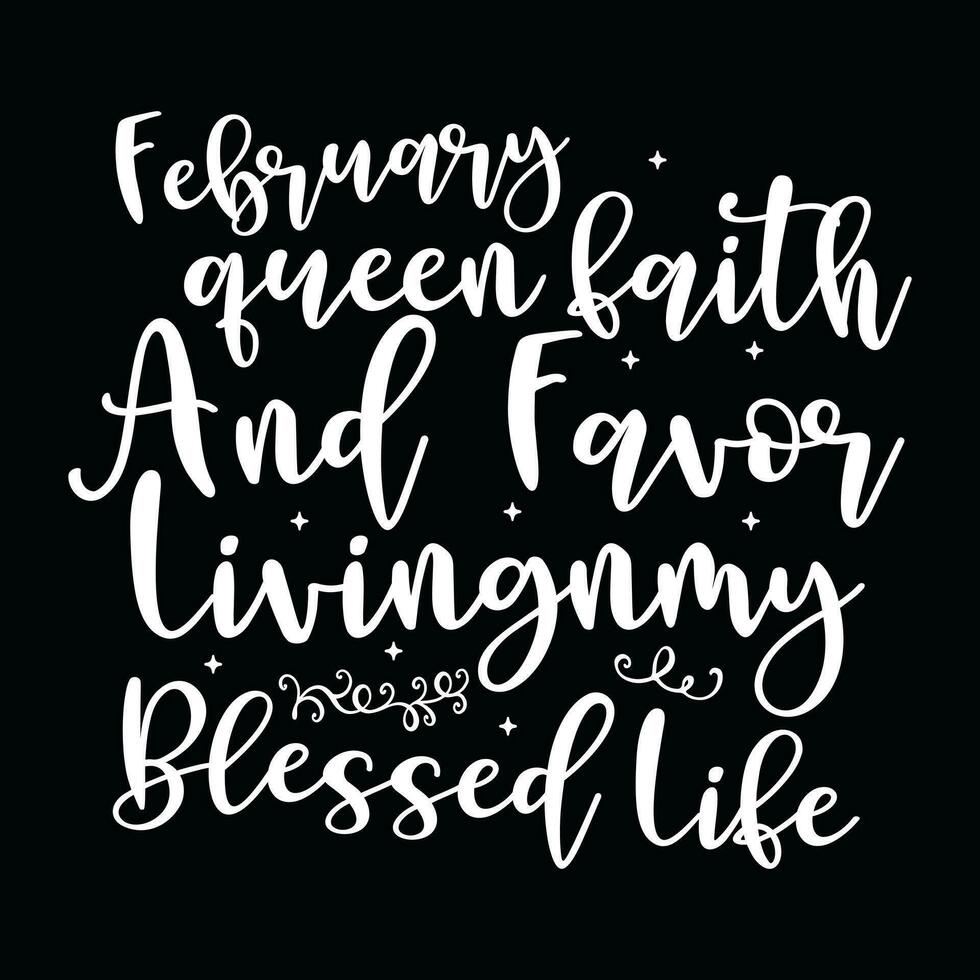 February
queen faith
And Favor
Livingnmy
Blessed Life